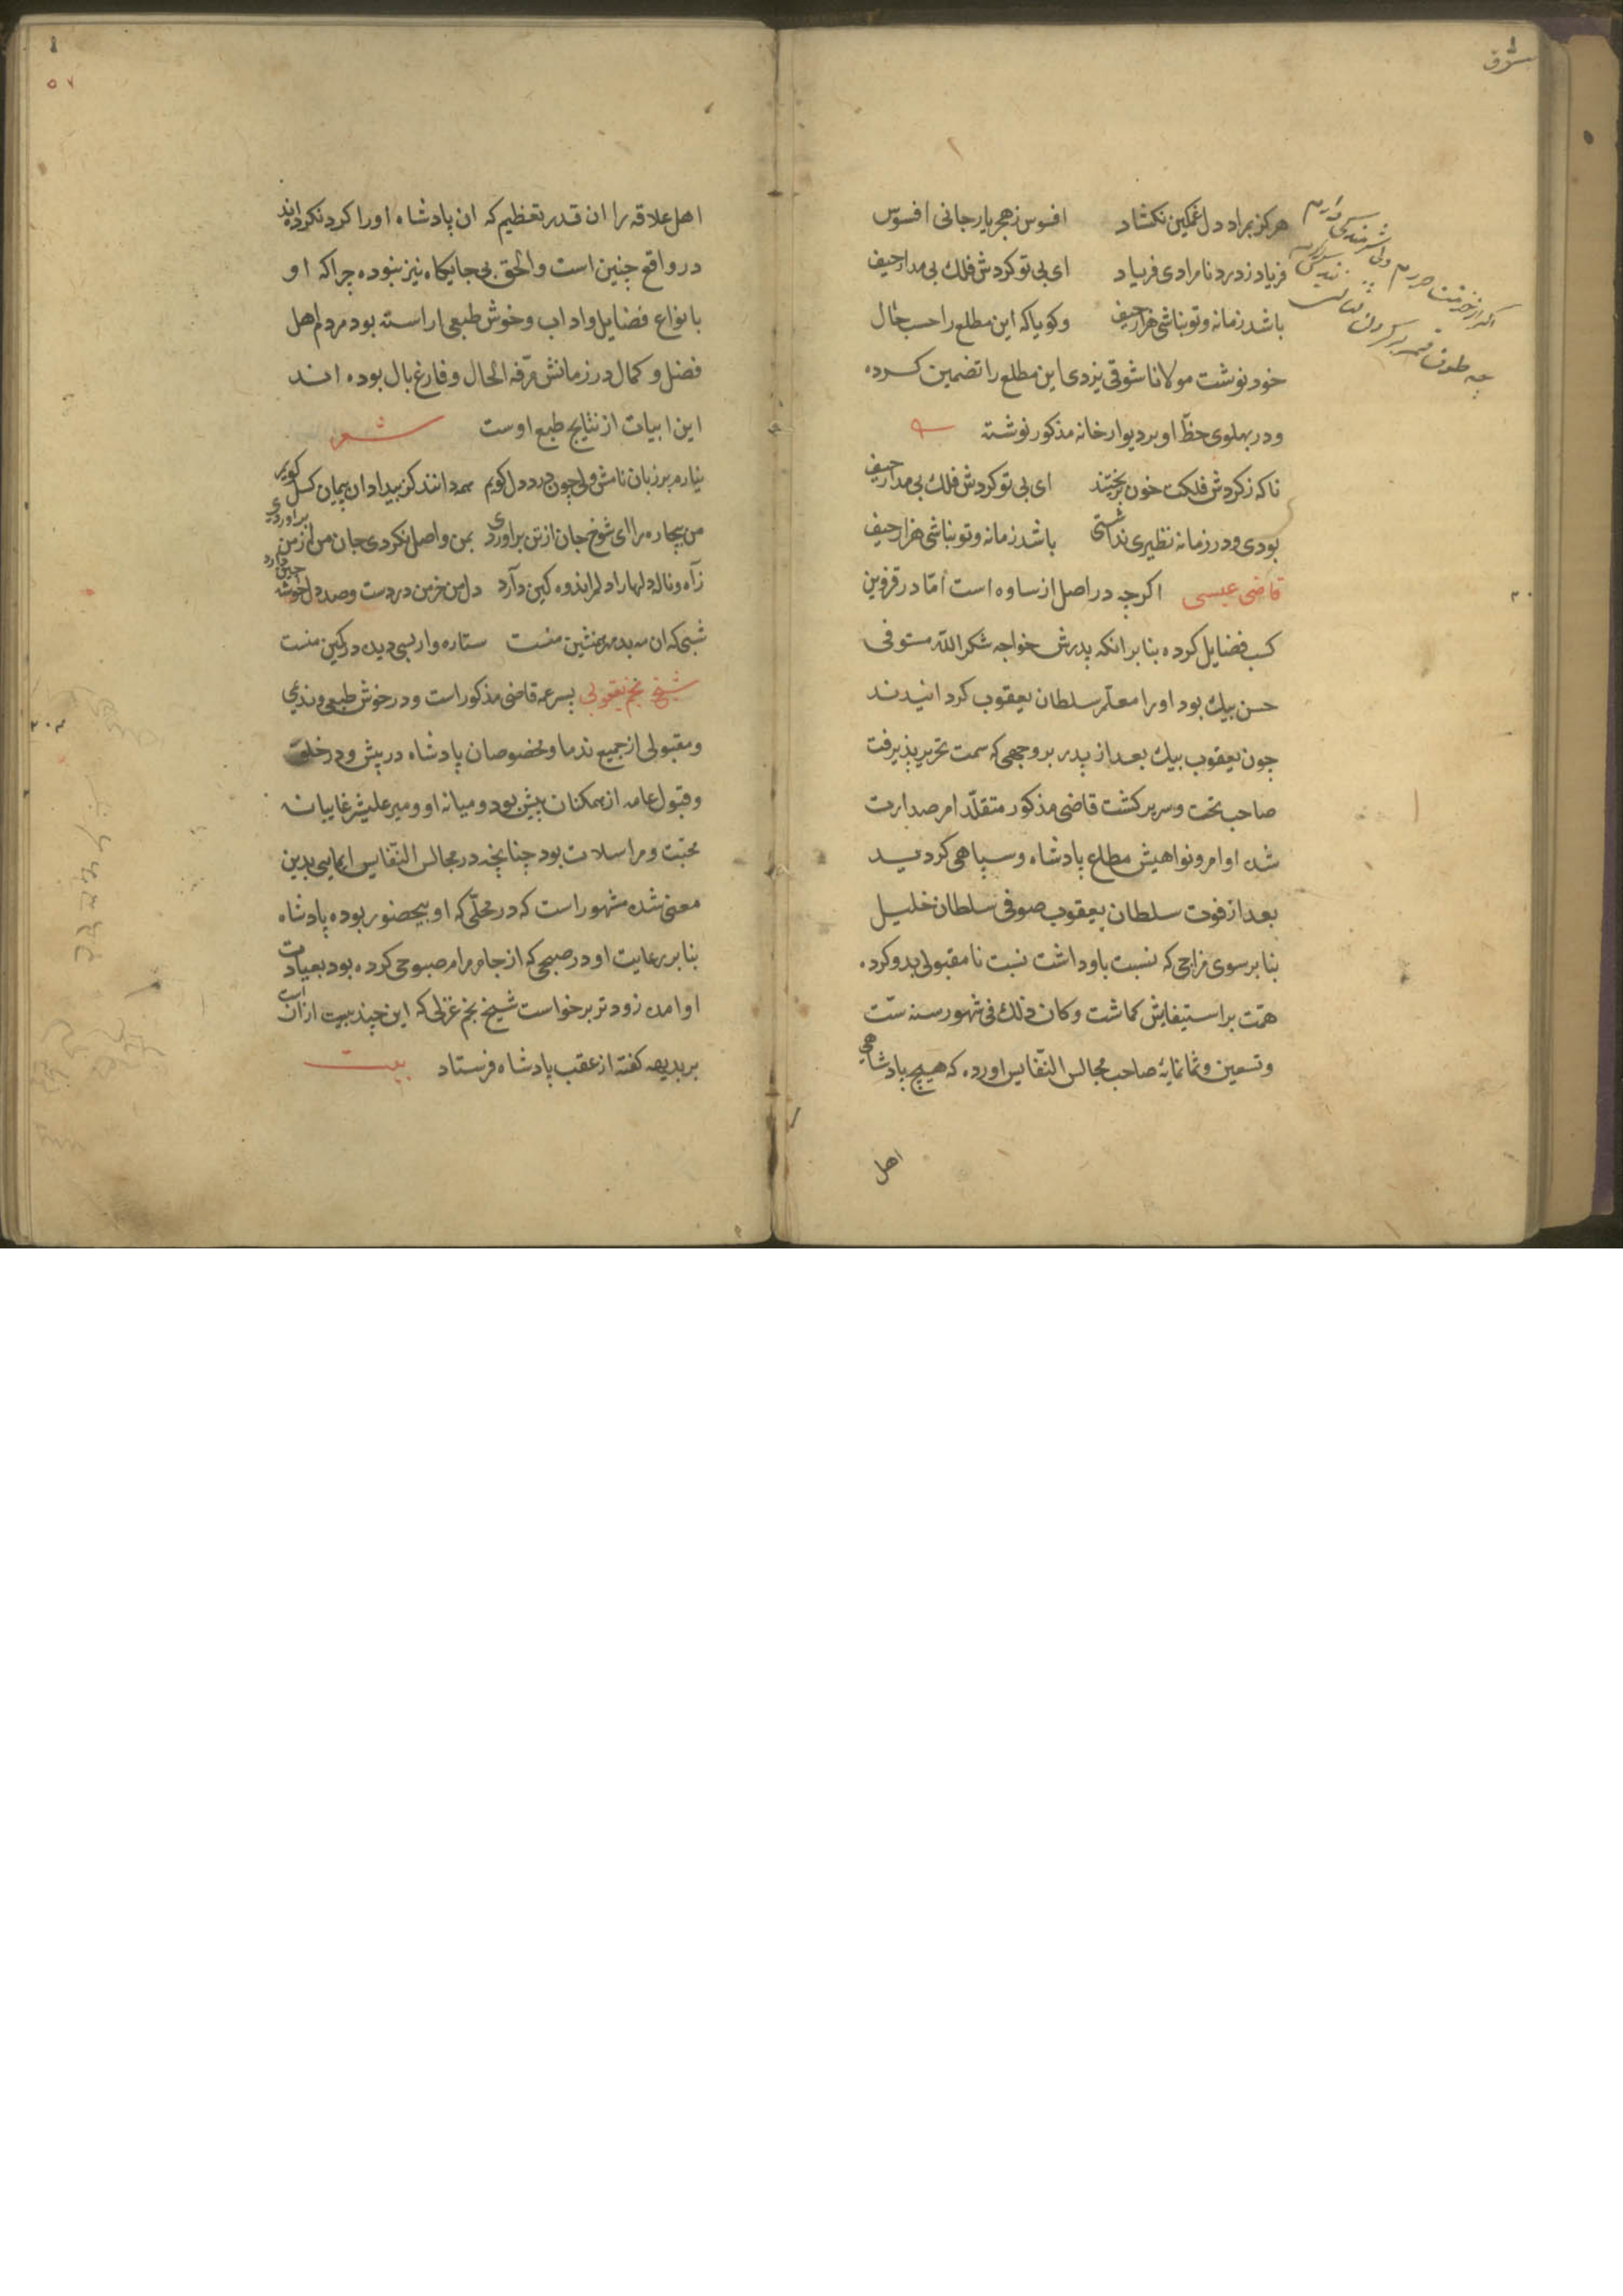 هرکز بمراد دل غمکین نکشاد افسوس زهجر یار جانی افسوس
فریاد زدرد نامرادی فریاد ای بی تو کردش فلك بی مدار حیف
باشد زمانه و تو نباشی هزار حیف وکویا که این مطلع را حسب حال
خود نوشت مولانا شوقی یزدی این مطلع را تضمین کرده
ودر پهلوی خظّ او بر دیوار خانه مذکور نوشته
ناکه زکردش فلکت خون بریختند ای بی تو کردش فلك بی مدار حیف
بودی ودر زمانه نظیری نداشتی باشد زمانه وتو نباشی هزار حیف
قاضی عیسی اکرچه در اصل از ساوه است امّا در قزوین
کسب فضایل کرده بنا بر انکه پدرش خواجه شکر اللّه مستوفی
حسن بیك بود اورا معلّم سلطان یعقوب کردانیدند
چون یعقوب بیك بعد از پدر بر وجهی که سمت تحریر پذیرفت
صاحب تخت وسریر کشت قاضی مذکور متقلّد امر صدارت
شد اوامر ونواهیش مطاع پادشاه وسپاهی کردید
بعد از فوت سلطان یعقوب صوفی سلطان خلیل
بنا بر سوی مزاجی که نسبت باو داشت نسبت نامقبولی بدو کرده
همّت بر استیفایش کماشت وکان ذلك فی شهور سنه ستّ
وتسعین وثمانمایة صاحب مجالس النّفایس اورده که هیچ پادشاهی
اهل
اهل علاقه را ان قدر تعظیم که ان پادشاه اورا کرد نکرده اند
در واقع چنین است والحق بی جایکاه نیز نبوده چرا که او
بانواع فضایل واداب وخوش طبعی اراسته بود مردم اهل
فضل وکمال در زمانش مرّفه الحال وفارغ بال بوده اند
این ابیات از نتایج طبع اوست شعر
نیارم بر زبان نامش ولی چون درد دل کویم همه دانند کز بیداد ان پیمان کسل کویم
من بیچاره را ای شوخ جان از تن براوردی بمن واصل نکردی جان من از من براوردی
زآه وناله دلها را دلم اندوه کین دآرد دل من خرمن دردست وصد دل خوشه چین دارد
شبی که ان مه بد مهر همنشین منست ستاره وار بسی دیده در کمین منست
شیخ نجم یعقوبی پسر عمه قاضی مذکور است ودر خوش طبعی وندیمی
ومقبولی از جمیع ندما ومخصوصان پادشاه در پیش ودر خلق
وقبول عامه از همکنان بیش بود ومیانه او ومیر علیشیر غایبانه
محبّت ومراسلات بود چنانچه در مجالس النّفایس ایمایی بدین
معنی شده مشهور است که در محلّی که او بیحضور بوده پادشاه
بنا بر رعایت او در صبحی که از جام مرام صبوحی کرده بود بعیادت
او امده زودتر برخواست شیخ نجم غزلی که این چند بیت از آنست
بر بدیهه کفته از عقب پادشاه فرستاد بیت